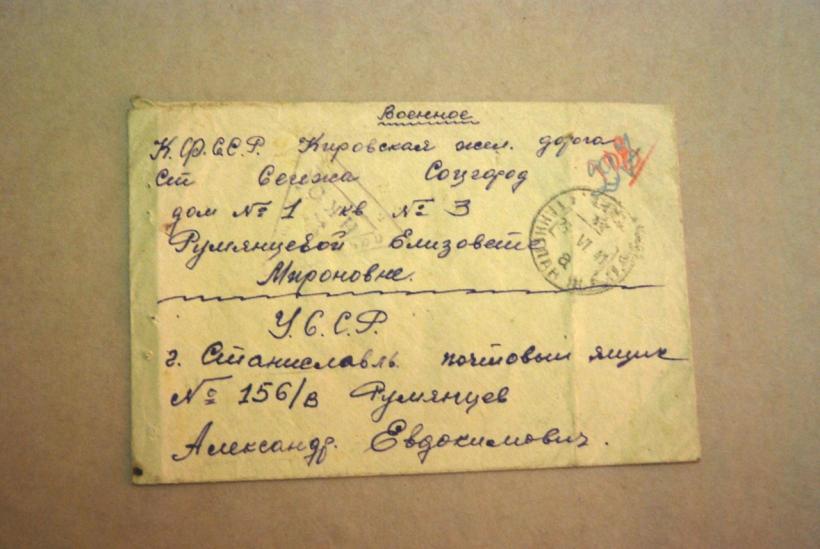 Военное
К.Ф.С.С.Р. Кировская жел. дорога
ст Сегежа Соцгород
дом № 1 кв № 3
Румянцевой Елизовете
Мироновне.
У.С.С.Р.
г. Станиславль почтовый ящик
№ 156/в Румянцев
Александр. Евдокимович.